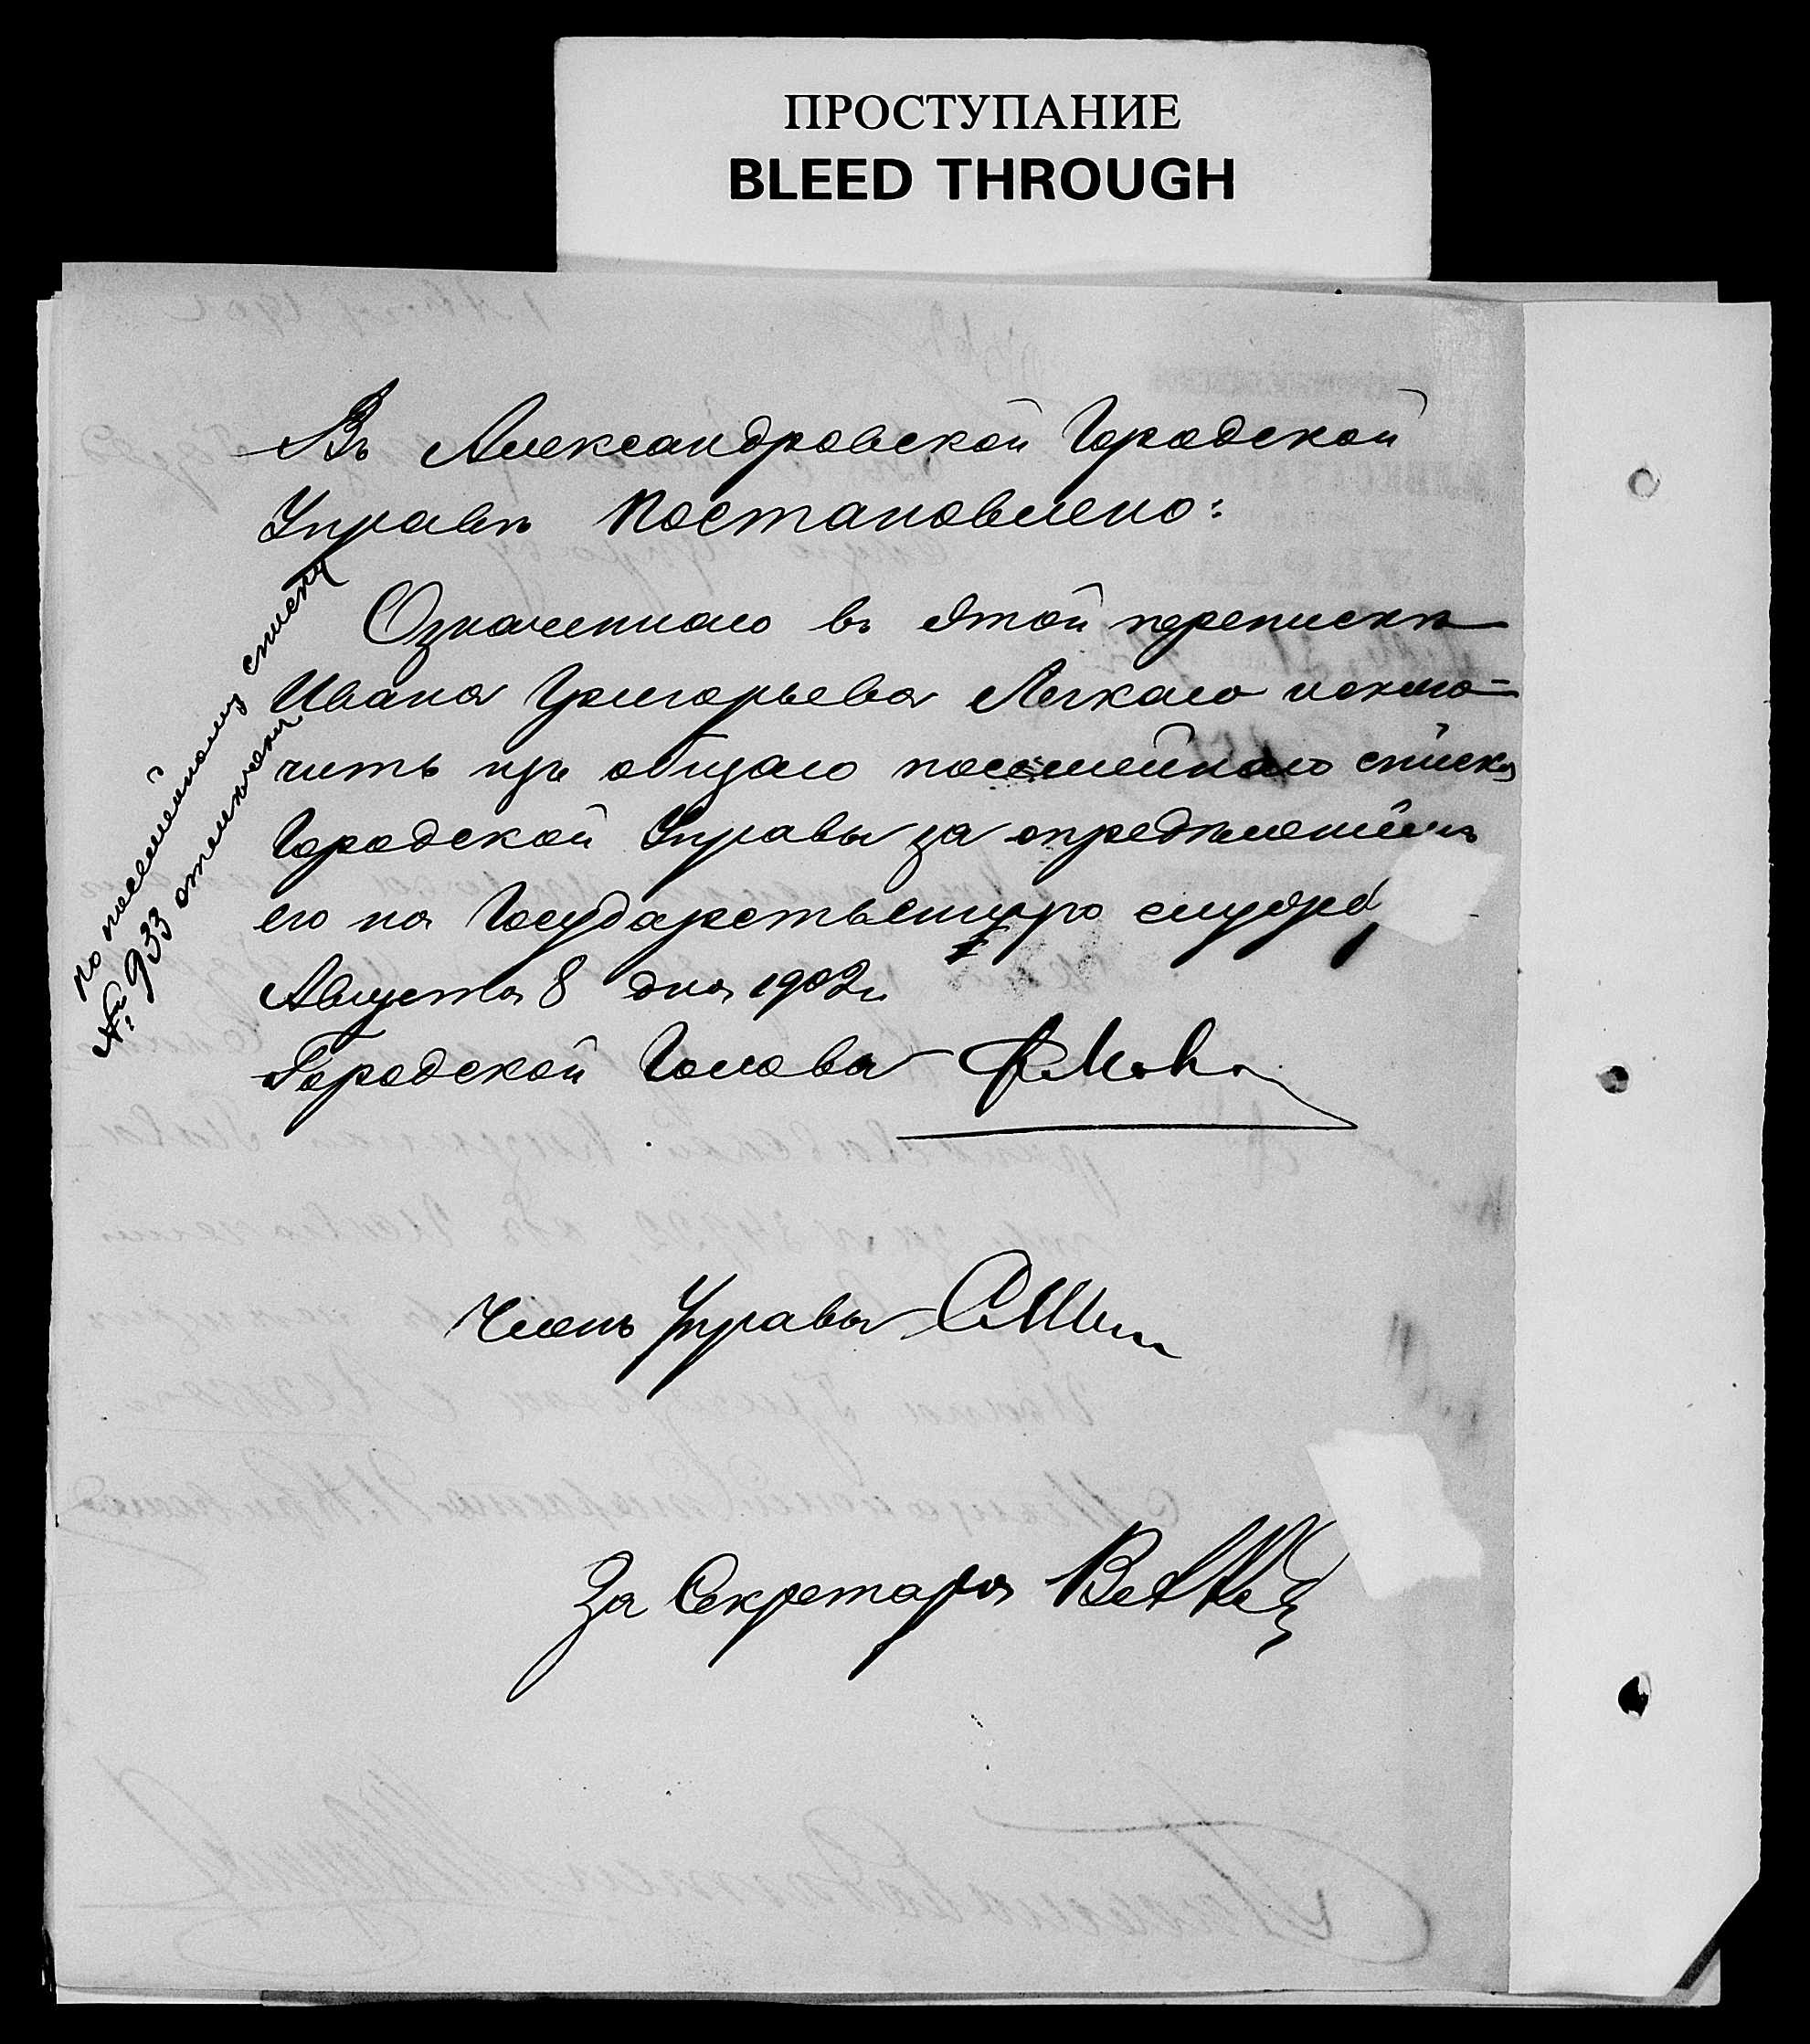 ПРОСТУПАНИЕ
BLEED THROUGH
Въ Александровской Городской
Управѣ постановлено:
Означеннаго въ этой перепискѣ
Ивана Григорьева Легкаго исклю=
чить изъ общаго посемейнаго списка
Городской Управы за опредѣленіемъ
его на Государственную службу,
Августа 8 дня 1902 г.
Городской Голова
Членъ Управы
За Секретаря
по посемейному списку
№ 933 отмѣчено